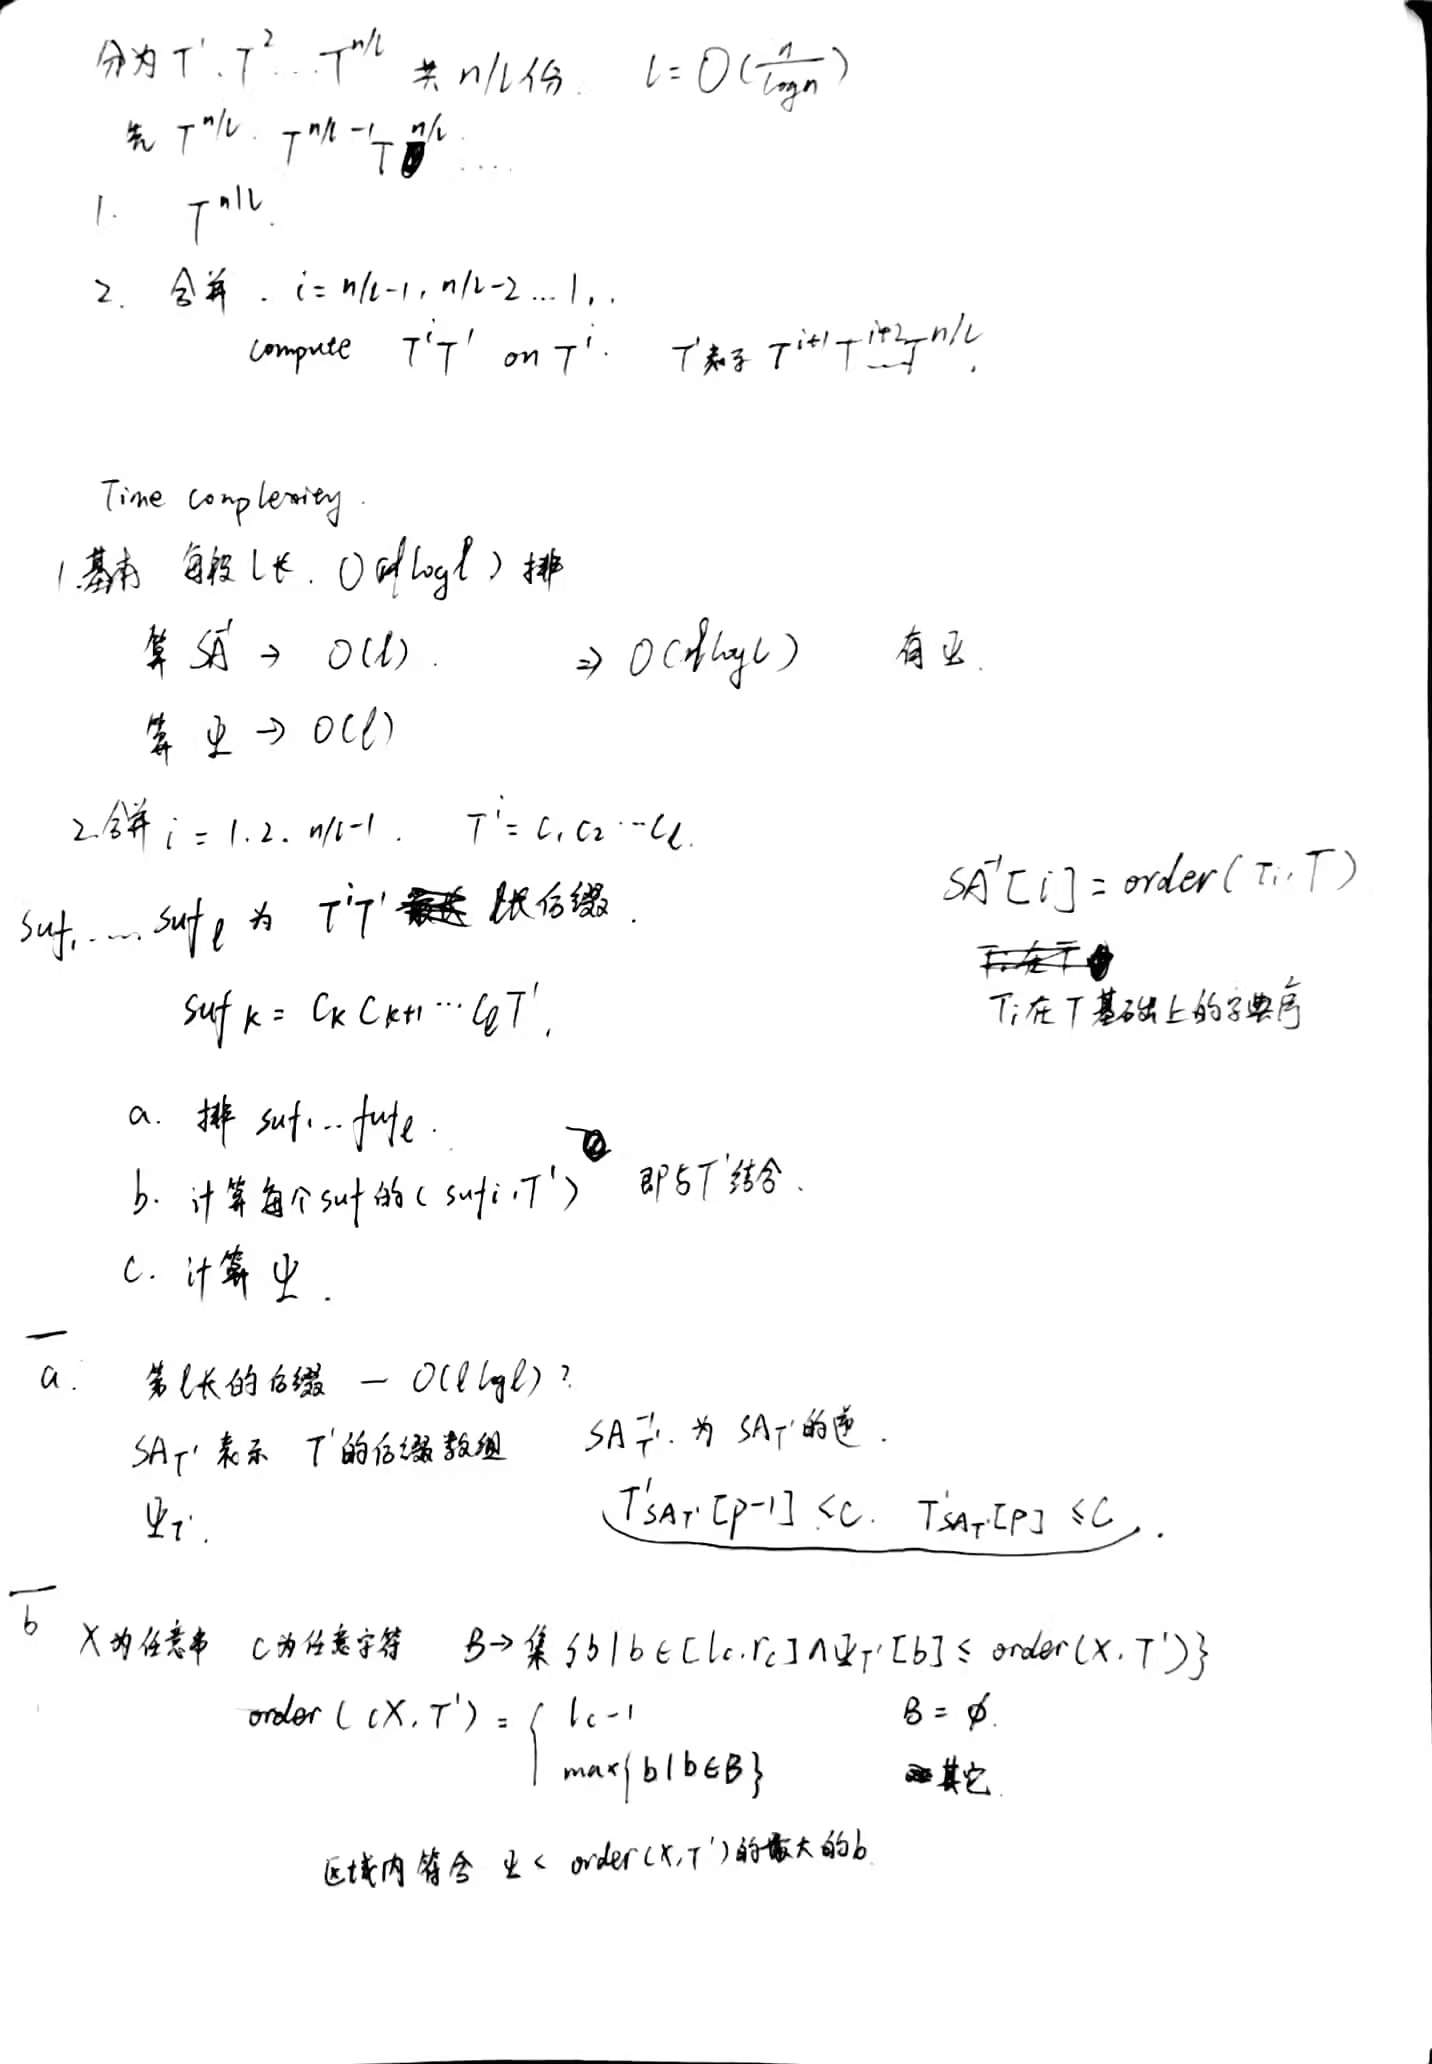 分为 T¹、T² ... T^{n/l} 共 n/l 份. l = O(n/logn)
先 T^{n/l}. T^{n/l-1}T^{n/l} ....
1. T^{n/l}.
2. 合并. i = n/l-1, n/l-2 ... 1, .
compute TⁱT' on Tⁱ. T'表示 T^{i+1}T^{i+2}...T^{n/l}.
Time complexity.
1.基本 每段 l 长. O(llogl) 排
算 SA⁻¹ → O(l). ⇒ O(llogl) 有Ψ.
算 Ψ → O(l)
2.合并 i = 1.2. n/l-1. Tⁱ = c₁c₂…c_l.
suf₁.... suf_l 为 TⁱT' l长后缀.
SA⁻¹[i] = order(Ti, T)
Ti在T基础上的字典序
suf k = C_k C_{k+1} … C_l T'.
a. 排 suf₁...suf_l.
b. 计算每个suf的(sufi, T') 即与T'结合.
c. 计算 Ψ.
a. 第l长的后缀 — O(llogl)?
SA_{T'} 表示 T'的后缀数组 SA⁻¹_{T'}. 为 SA_{T'}的逆.
Ψ_{T'}. T'_{SA_{T'}[p-1]} ≤ C. T'_{SA_{T'}[p]} ≤ C.
b X为任意串 C为任意字符 B→集{b|b∈[lc, rc]∧Ψ_{T'}[b] ≤ order(X, T')}
order(cX, T') = { lc-1 B = ∅.
max{b|b∈B} 其它.
区域内符合 Ψ < order(X, T')的最大的b.